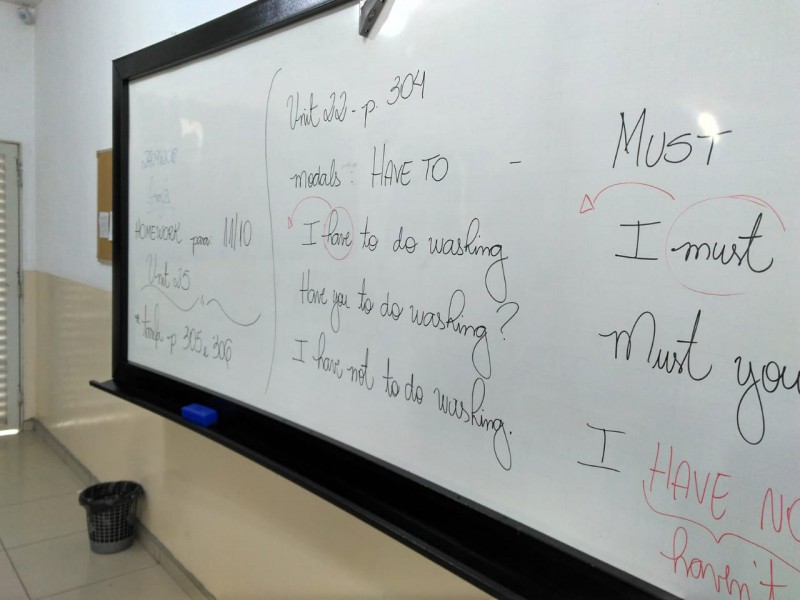 HOMEWORK para: 11/10
Unit 25
p 305 e 306
Unit 22 - p. 304
modals: HAVE TO - MUST
I have to do washing
Have you to do washing?
I have not to do washing.
I must
Must you
I HAVE NO
haven't